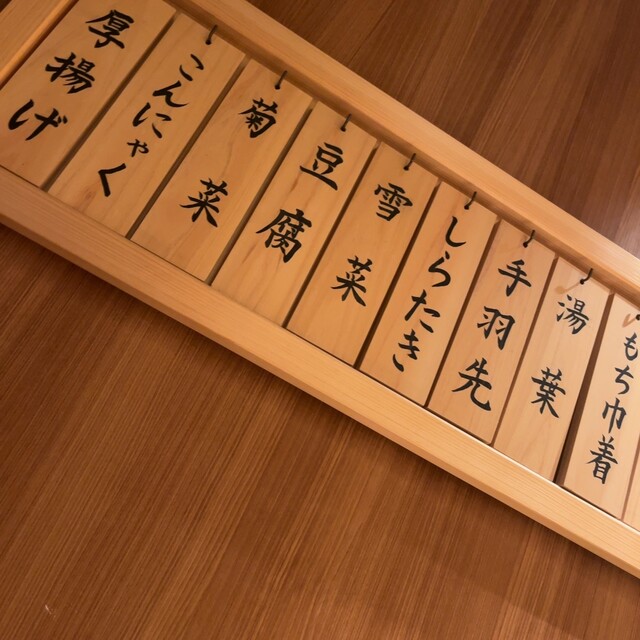 厚揚げ
こんにゃく
菊菜
豆腐
雪菜
しらたき
手羽先
湯葉
もち巾着